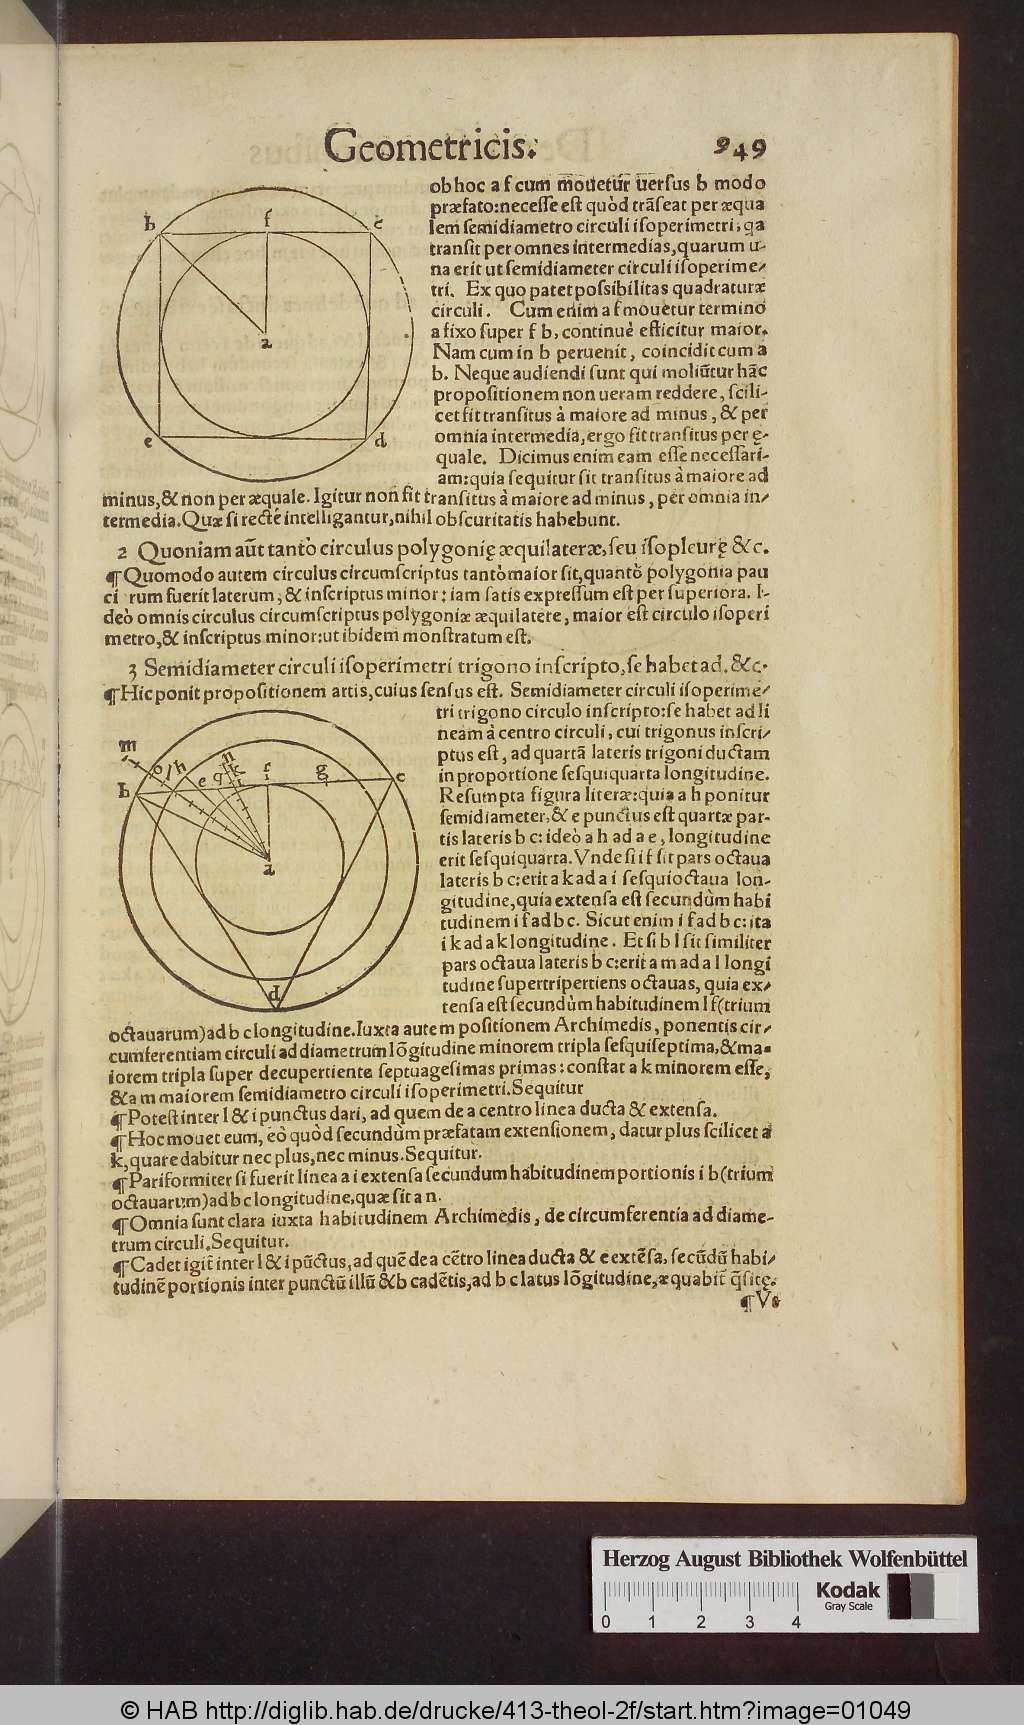 Geometricis. 949
b f c
a
e d
ob hoc a f cum mouetur uersus b modo
præfato: necesse est quòd trãseat per æqua
lem semidiametro circuli isoperimetri, qa
transit per omnes intermedias, quarum u-
na erit ut semidiameter circuli isoperime-
tri. Ex quo patet possibilitas quadraturæ
circuli. Cum enim a f mouetur termino
a fixo super f b, continuè efficitur maior.
Nam cum in b peruenit, coincidit cum a
b. Neque audiendi sunt qui moliũtur hãc
propositionem non ueram reddere, scili-
cet fit transitus à maiore ad minus, & per
omnia intermedia, ergo fit transitus per ę-
quale. Dicimus enim eam esse necessari-
am: quia sequitur sit transitus à maiore ad
minus, & non per æquale. Igitur non fit transitus à maiore ad minus, per omnia in-
termedia. Quæ si rectè intelligantur, nihil obscuritatis habebunt.
2 Quoniam aũt tantò circulus polygonię æquilateræ, seu isopleurę &c.
¶ Quomodo autem circulus circumscriptus tantò maior sit, quantò polygonia pau
ci rum fuerit laterum, & inscriptus minor: iam satis expressum est per superiora. I-
deò omnis circulus circumscriptus polygoniæ æquilatere, maior est circulo isoperi
metro, & inscriptus minor: ut ibidem monstratum est.
3 Semidiameter circuli isoperimetri trigono inscripto, se habet ad. &c.
¶ Hic ponit propositionem artis, cuius sensus est. Semidiameter circuli isoperime-
m o l h e q n k i f g
b c
a
d
tri trigono circulo inscripto: se habet ad li
neam à centro circuli, cui trigonus inscri-
ptus est, ad quartã lateris trigoni ductam
in proportione sesquiquarta longitudine.
Resumpta figura literæ: quia a h ponitur
semidiameter, & e punctus est quartæ par-
tis lateris b c: ideò a h ad a e, longitudine
erit sesquiquarta. Vnde si i f sit pars octaua
lateris b c: erit a k ad a i sesquioctaua lon-
gitudine, quia extensa est secundùm habi
tudinem i f ad b c. Sicut enim i f ad b c: ita
i k ad a k longitudine. Et si b l sit similiter
pars octaua lateris b c: erit a m ad a l longi
tudine supertripertiens octauas, quia ex-
tensa est secundùm habitudinem l f (trium
octauarum) ad b c longitudine. Iuxta autem positionem Archimedis, ponentis cir-
cumferentiam circuli ad diametrum lõgitudine minorem tripla sesquiseptima, & ma-
iorem tripla super decupertiente septuagesimas primas: constat a k minorem esse,
& a m maiorem semidiametro circuli isoperimetri. Sequitur
¶ Potest inter l & i punctus dari, ad quem de a centro linea ducta & extensa.
¶ Hoc mouet eum, eò quòd secundùm præfatam extensionem, datur plus scilicet a
k, quare dabitur nec plus, nec minus. Sequitur.
¶ Pariformiter si fuerit linea a i extensa secundum habitudinem portionis i b (trium
octauarum) ad b c longitudine, quæ sit a n.
¶ Omnia sunt clara iuxta habitudinem Archimedis, de circumferentia ad diame-
trum circuli. Sequitur.
¶ Cadet igit̃ inter l & i pũctus, ad quẽ de a cẽtro linea ducta & e extẽsa, secũdũ habi-
tudinẽ portionis inter punctũ illũ & b cadẽtis, ad b c latus lõgitudine, æquabit̃ q̃sitę.
¶ Vs
Herzog August Bibliothek Wolfenbüttel
0 1 2 3 4
Kodak
Gray Scale
© HAB http://diglib.hab.de/drucke/413-theol-2f/start.htm?image=01049